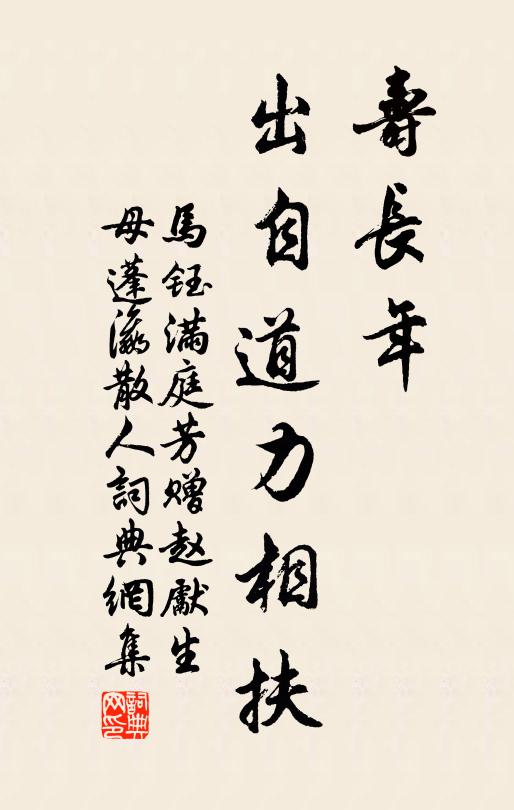 壽長年
出自道力相扶
馬鈺滿庭芳赠赵獻生
母蓬瀛散人詞典網集
詞典网印